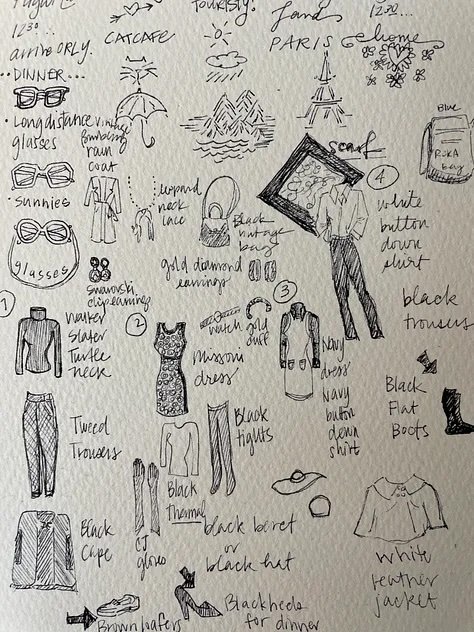 12 30...
arrive ORLY.
·· DINNER...
CATCAFE
Touristy.
Land
PARIS
12 20...
home
· Long distance
glasses
vintage
Burberry
rain
coat
· Sunnies
glasses
leopard
neck
lace
Black
vintage
bag
scarf
Blue
RUKA
bag
swarovski
clip earrings
gold diamond
earrings
④
white
button
down
shirt
black
trousers
①
Walker
Slater
Turtle
neck
②
Missoni
dress
watch
gold
cuff
③
Navy
dress
Navy
button
down
shirt
Black
Flat
Boots
Tweed
Trousers
Black
Thermal
Black
tights
Black
Cape
CJ
gloves
black beret
or
black hat
white
leather
jacket
Brown loafers
Black heels
for dinner